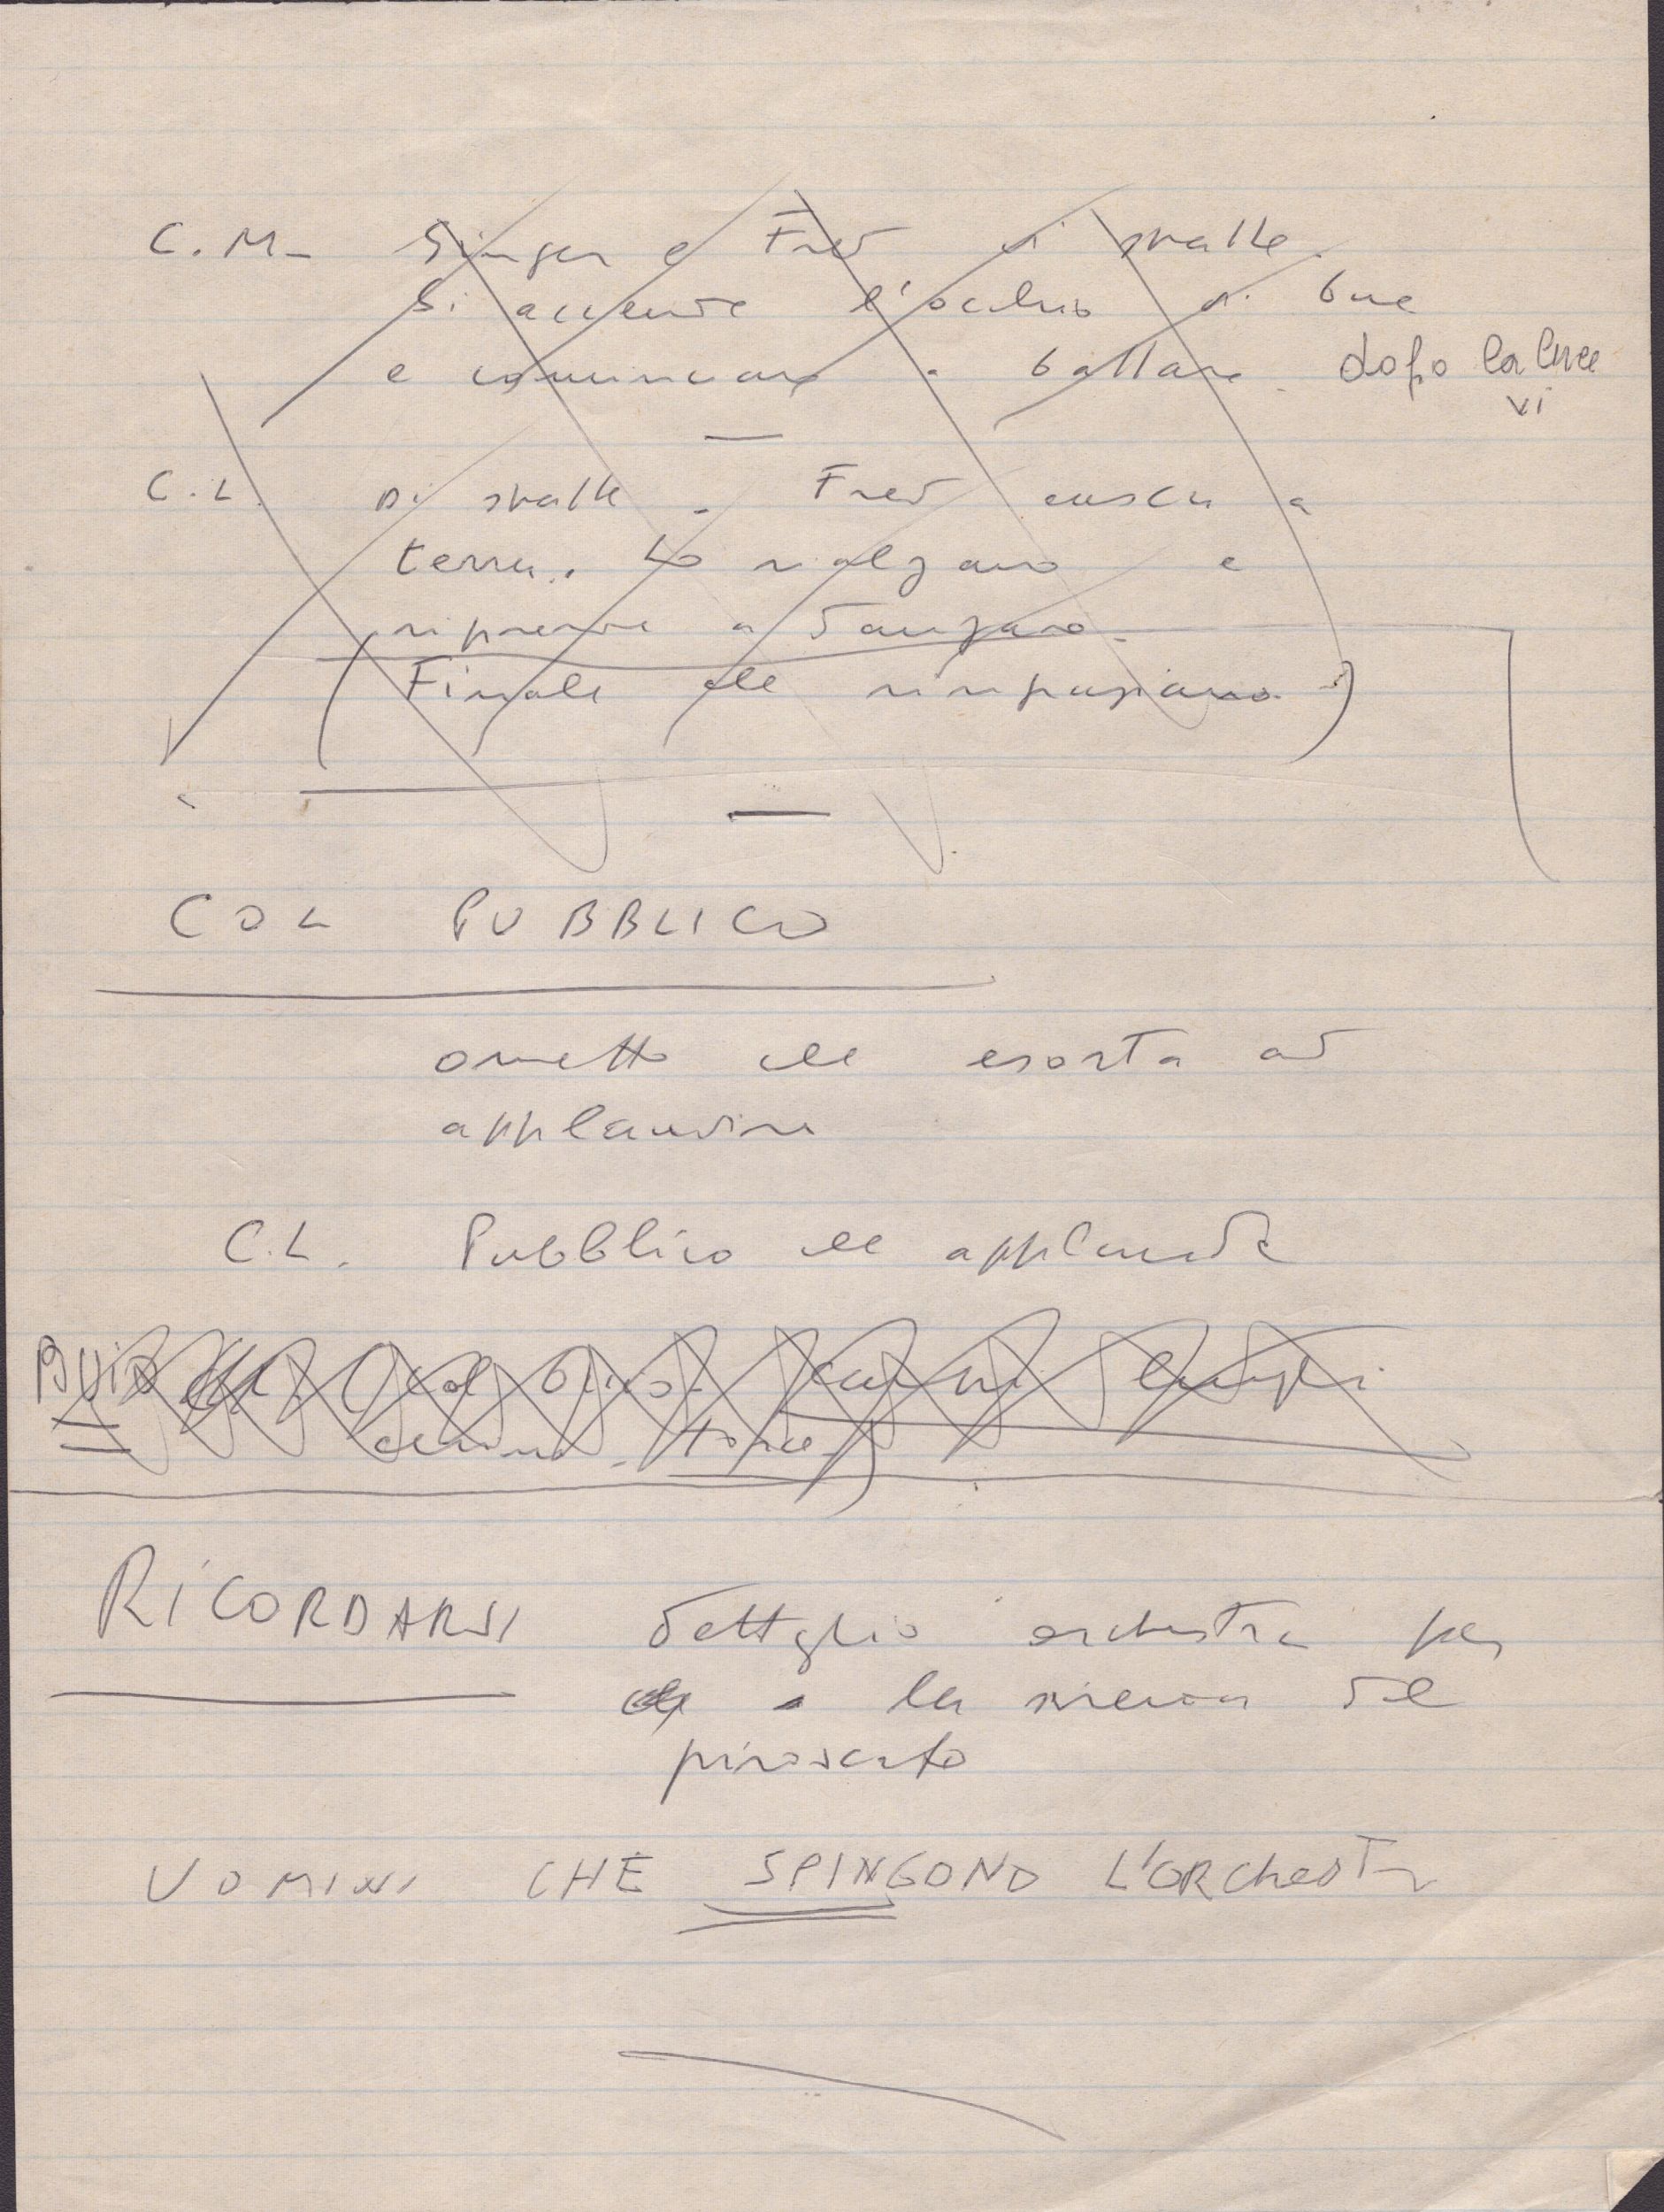 C.M- Ginger e Fred di spalle.
Si accende l'occhio di bue
e cominciano a ballare. dopo la luce
vi
C.L. Di spalle - Fred casca a
terra. Lo rialzano e
riprende a danzare.
(Finale che ringraziano.)
COL PUBBLICO
ometto che esorta ad
applaudire
C.L. Pubblico che applaude
Buio
RICORDARSI dettaglio orchestra per
la sirena del
piroscafo
UOMINI CHE SPINGONO L'ORCHESTRA